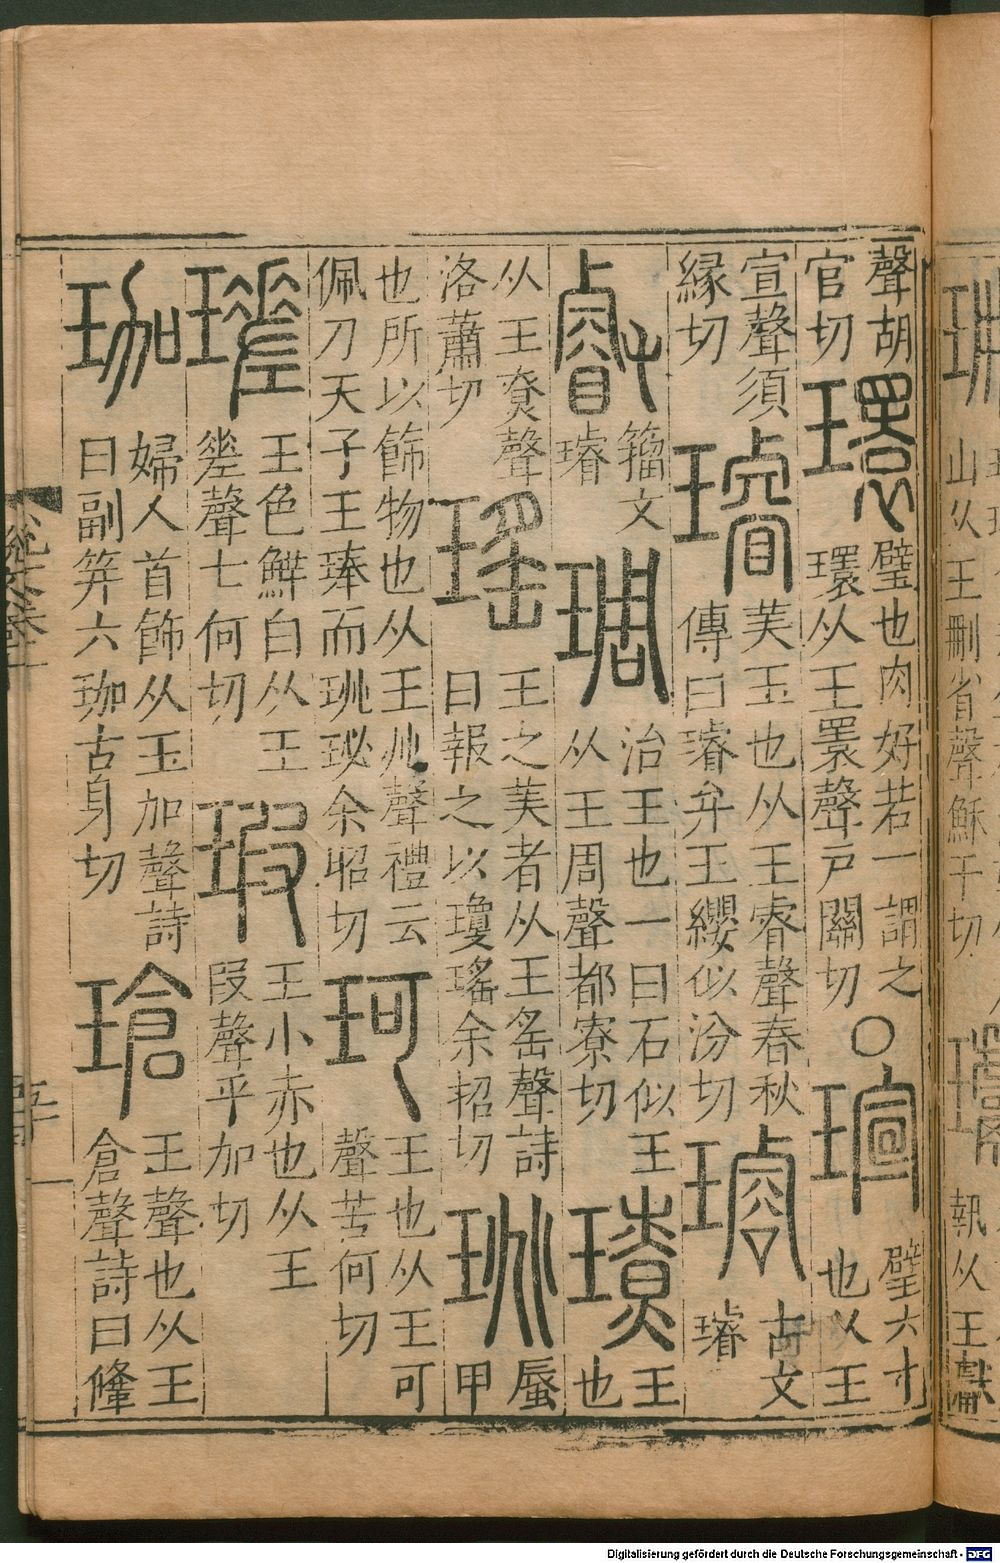 山从王刪省聲穌干切
瓛
執从王獻
聲胡
官切
環
璧也肉好若一謂之
環从王瞏聲戶關切
〇
瑄
璧六寸
也从王
宣聲須
緣切
璿
美玉也从王睿聲春秋
傳曰璿弁王纓似汾切
璿
古文
璿
叡
籀文
璿
琱
治王也一曰石似王
从王周聲都寮切
璙
王
也
从王尞聲
洛蕭切
瑤
王之美者从王䍃聲詩
曰報之以瓊瑤余招切
珧
蜃
甲
也所以飾物也从王兆聲禮云
佩刀天子王琫而珧珌余昭切
珂
王也从王可
聲苦何切
瑳
王色鮮白从王
差聲七何切
瑕
王小赤也从王
叚聲乎加切
珈
婦人首飾从玉加聲詩
曰副笄六珈古牙切
瑲
王聲也从王
倉聲詩曰鞗
Digitalisierung gefördert durch die Deutsche Forschungsgemeinschaft - DFG